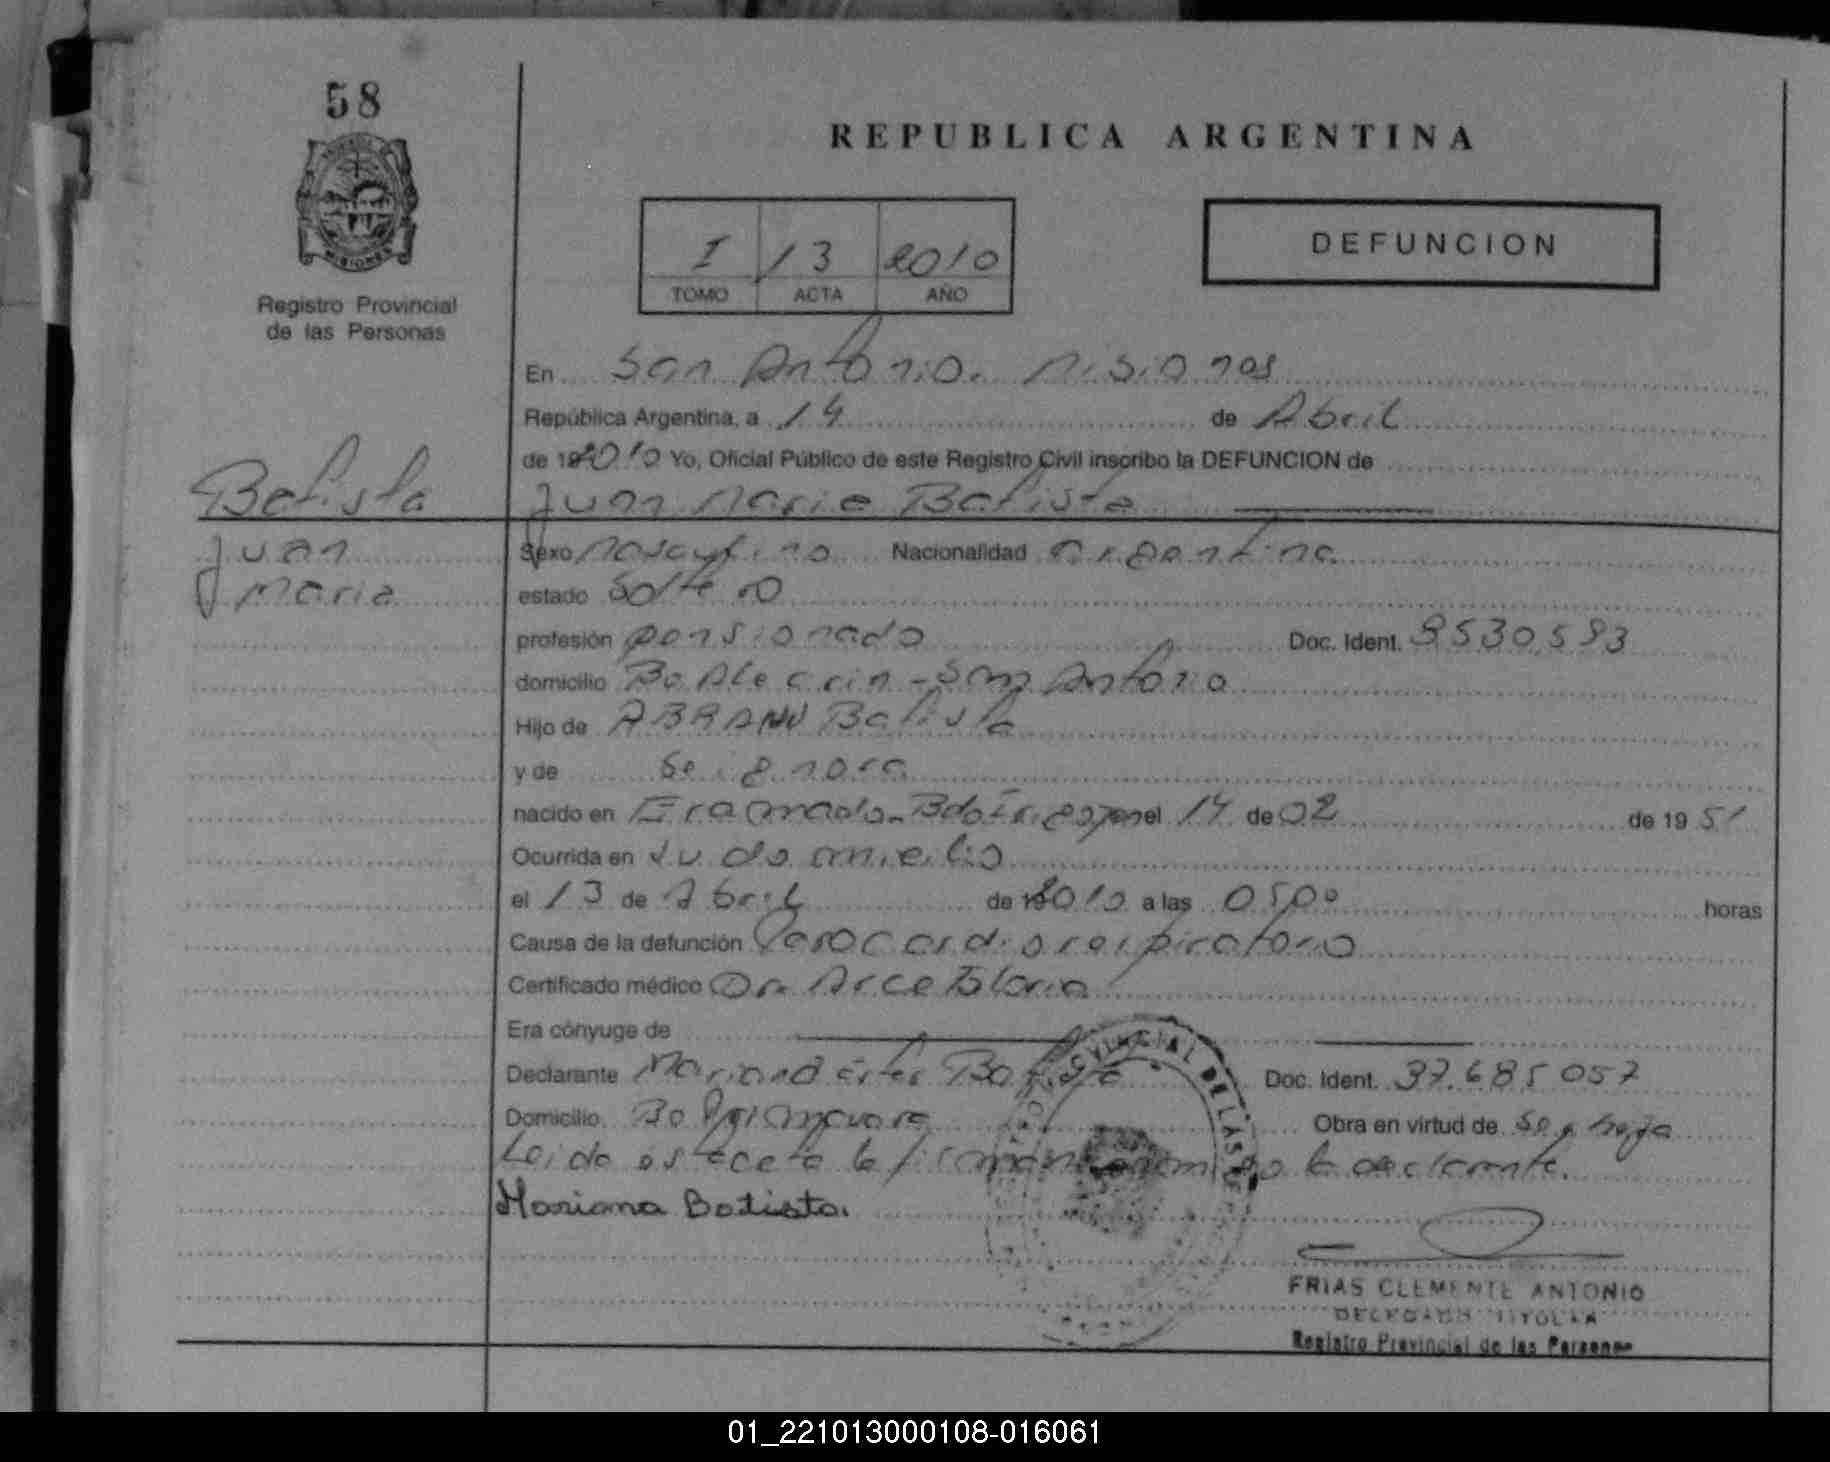 58
REPUBLICA ARGENTINA
MISIONES
Registro Provincial
de las Personas
I 13 2010
TOMO ACTA AÑO
DEFUNCION
En San Antonio. Misiones
República Argentina, a 14 de Abril
de 192010 Yo, Oficial Público de este Registro Civil inscribo la DEFUNCION de
Batista Juan Maria Batista
Juan Sexo Masculino Nacionalidad Argentina
Maria estado Soltero
profesión pensionado Doc. Ident. 8530.593
domicilio Bo Alecrin - San Antonio
Hijo de Batista
y de
nacido en el 14 de 02 de 1951
Ocurrida en su domicilio
el 13 de Abril de 192010 a las 0500 horas
Causa de la defunción Paro Cardiorespiratorio
Certificado médico Dr. Arce
Era cónyuge de
Declarante Batista Doc. Ident. 37.685.057
Domicilio Bo Primavera Obra en virtud de
Leida esta acta la firma la declarante.
Mariana Batista.
PROVINCIAL DE LAS
FRIAS CLEMENTE ANTONIO
DELEGADO TITULAR
Registro Provincial de las Personas
01_221013000108-016061